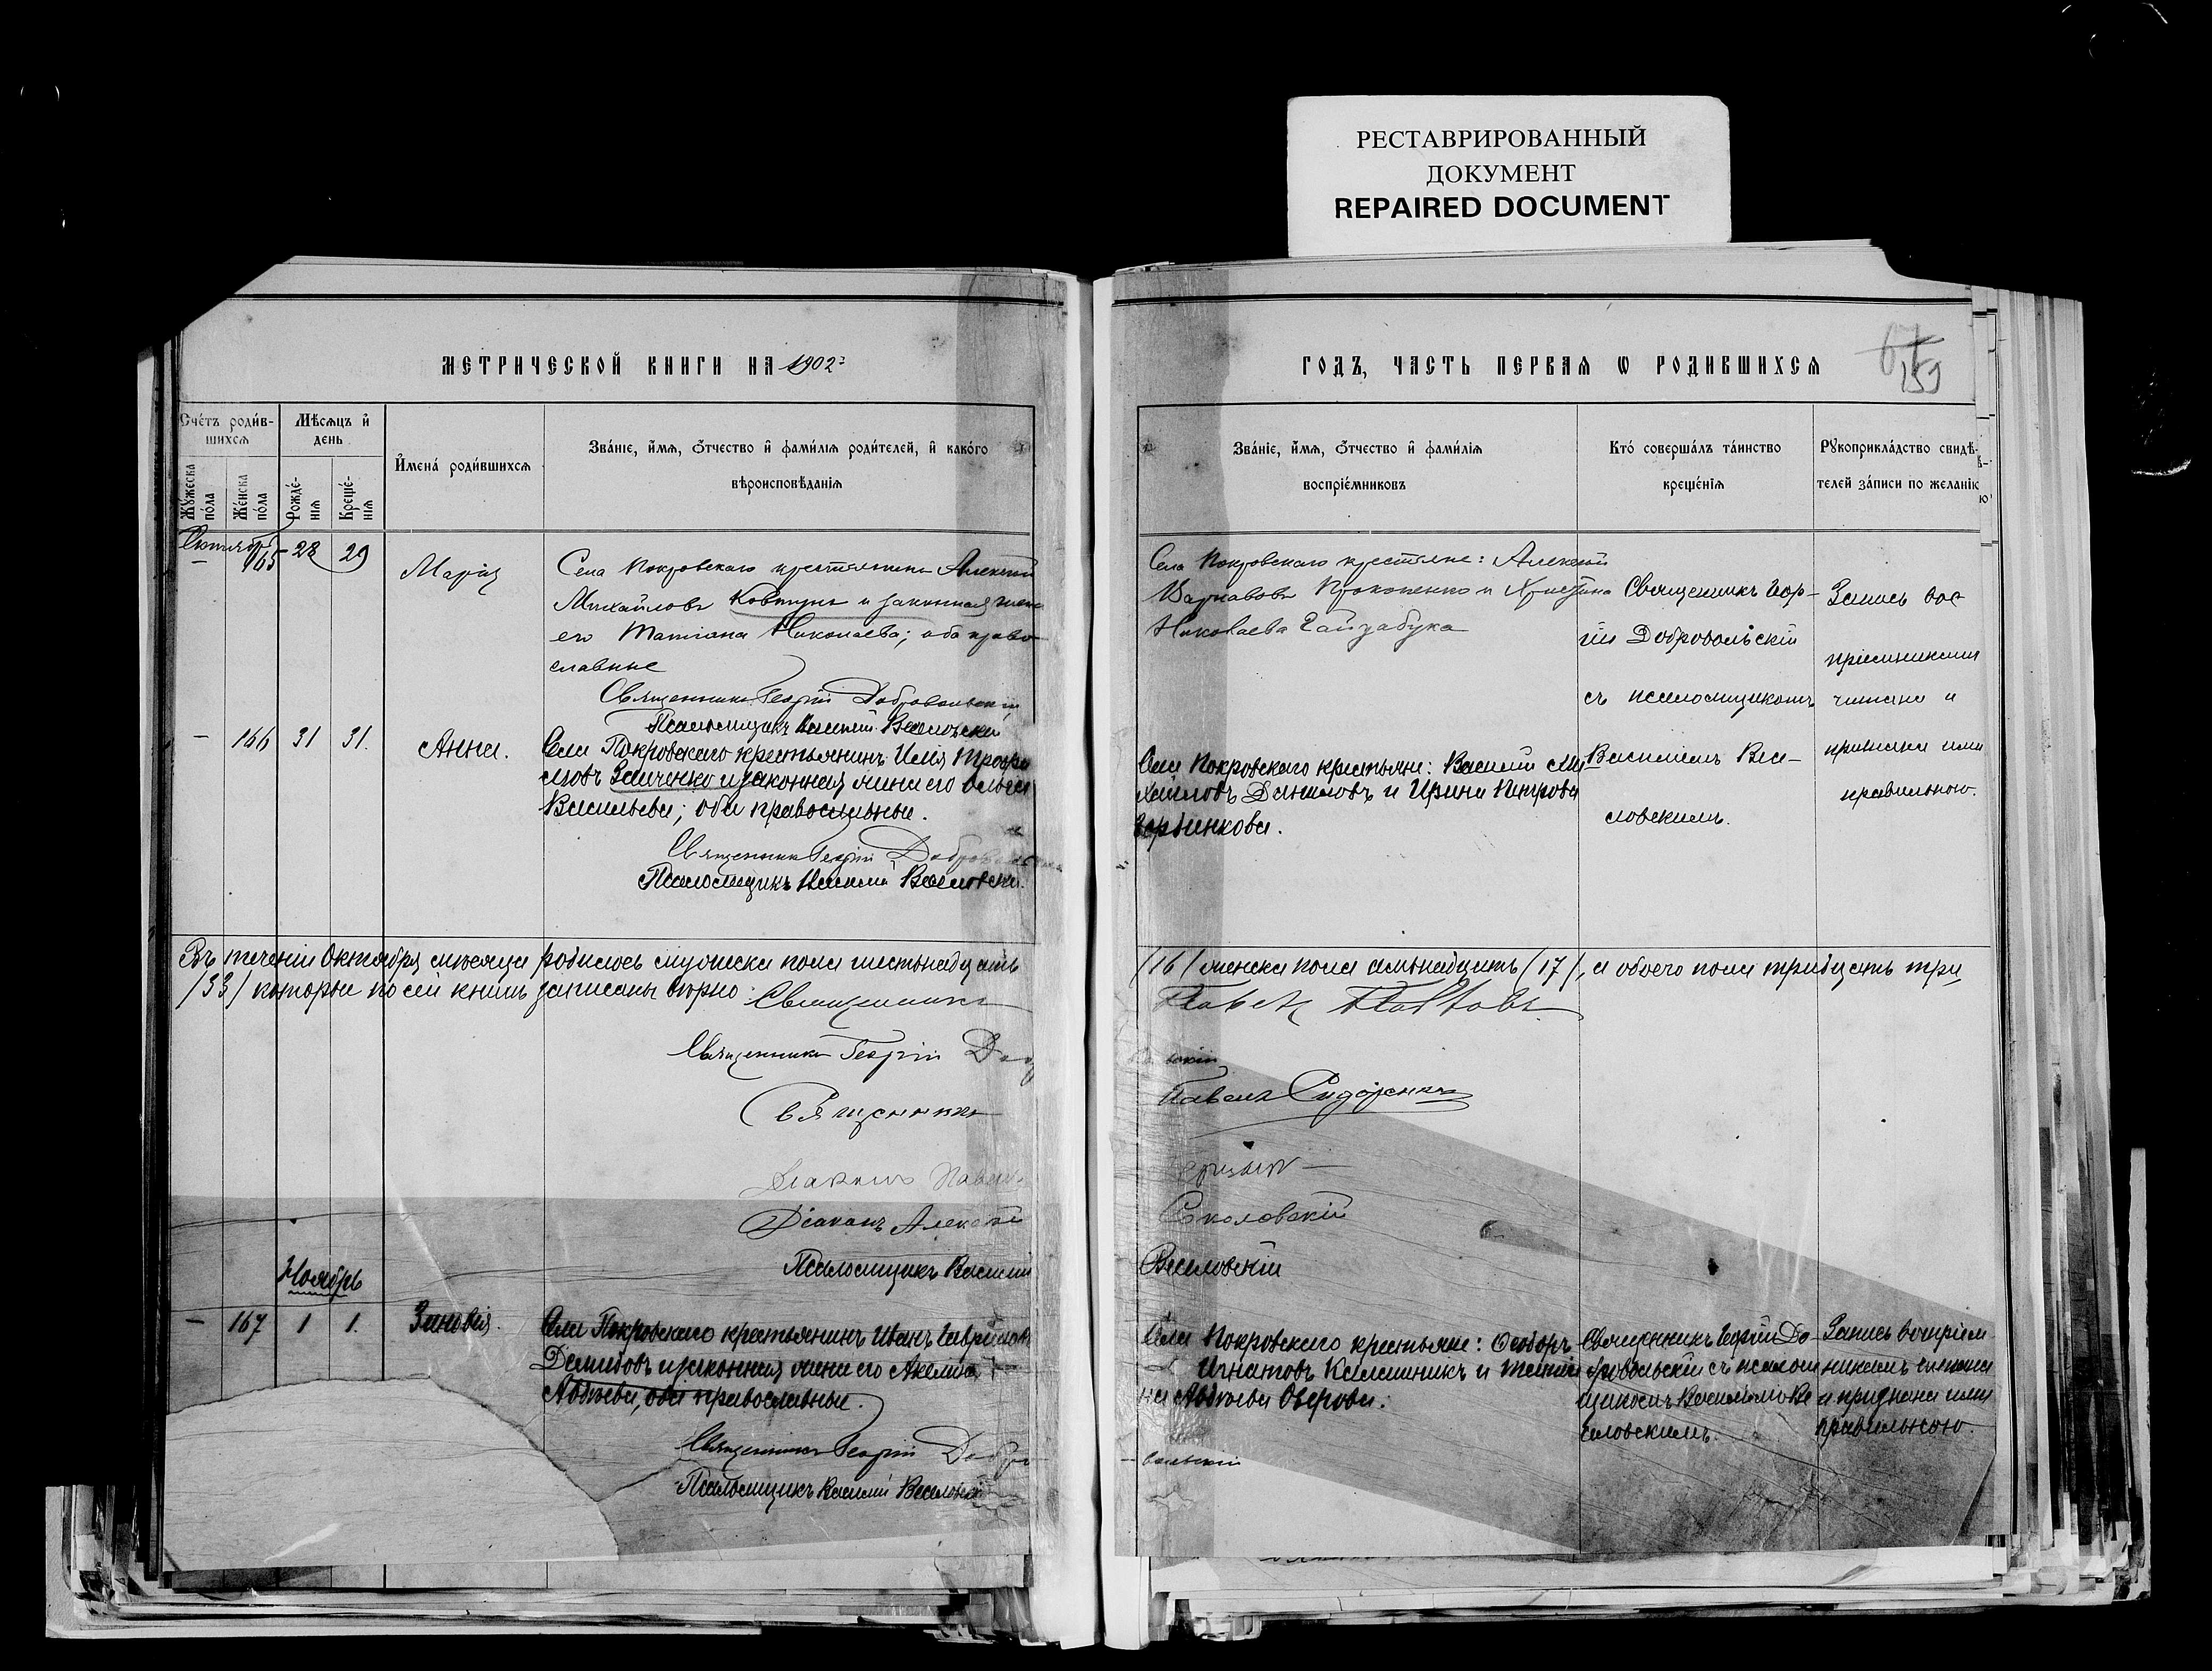 РЕСТАВРИРОВАННЫЙ
ДОКУМЕНТ
REPAIRED DOCUMENT
МЕТРИЧЕСКОЙ КНИГИ НА 1902
ГОДЪ, ЧАСТЬ ПЕРВАЯ Ѡ РОДИВШИХСЯ
159
Сче́тъ роди́в-
шихсѧ
Мѣсѧцъ и҆
день
Мꙋ́жеска
по́ла
Же́нска
по́ла
Рожде́-
нїѧ
Креще́-
нїѧ
И҆мена́ роди́вшихсѧ
Зва́нїе, и҆́мѧ, ѻ҆́тчество и҆ фами́лїѧ роди́телей, и҆ како́го
вѣроисповѣ́данїѧ
Зва́нїе, и҆́мѧ, ѻ҆́тчество и҆ фами́лїѧ
воспрїе́мниковъ
Кто́ соверша́лъ та́инство
креще́нїѧ
Рꙋкоприкла́дство свидѣ́-
телей за́писи по жела́нїю
Октябрь
– 165 28 29
Марія
Села Покровскаго крестьянинъ Алексій
Михайловъ Ковтунъ и законная жена
его Татіана Николаева; оба право
славные
Священникъ Георгій Добровольскій
Псаломщикъ Василій Веселовскій
Села Покровскаго крестьяне: Алексій
Варнавовъ Прокопенко и Христина
Николаева Гайдабука
Священникъ Геор-
гій Добровольскій
съ псаломщикомъ
Василіемъ Весе-
ловскимъ.
Запись вос
пріемниками
читана и
признана ими
правильною.
– 166 31 31.
Анна.
Села Покровскаго крестьянинъ Илія Трофи
мовъ Заиченко и законная жена его Ольга
Васильева; оба православные.
Священникъ Георгій Добровольскій
Псаломщикъ Василій Веселовскій
Села Покровскаго крестьяне: Василій Ми
хайловъ Даниловъ и Ирина Петрова
Горбинкова.
Въ теченіи Октября мѣсяца родилось мужеска пола шестьнадцать
/16/ женска пола семьнадцать /17/, а обоего пола тридцать три,
/33/ которые по сей книгѣ записаны вѣрно. Священникъ
Священникъ Георгій Добро
вольскій
Священникъ
Павелъ Сидоренко
Діаконъ Павелъ
Діаконъ Алексѣй
Соколовскій
Псаломщикъ Василій
Веселовскій
Ноябрь
– 167 1 1.
Зиновія.
Села Покровскаго крестьянинъ Иванъ Гавриловъ
Демидовъ и законная жена его Акелина
Авдѣева, оба православные.
Священникъ Георгій Добро
вольскій
Псаломщикъ Василій Веселовскій
Села Покровскаго крестьяне: Ѳеодоръ
Игнатовъ Калашникъ и Татіа
на Авдѣева Озерова.
Священникъ Георгій До-
бровольскій съ псалом
щикомъ Василіемъ Ве
селовскимъ.
Запись воспріем
никами читана
и признана ими
правильною.